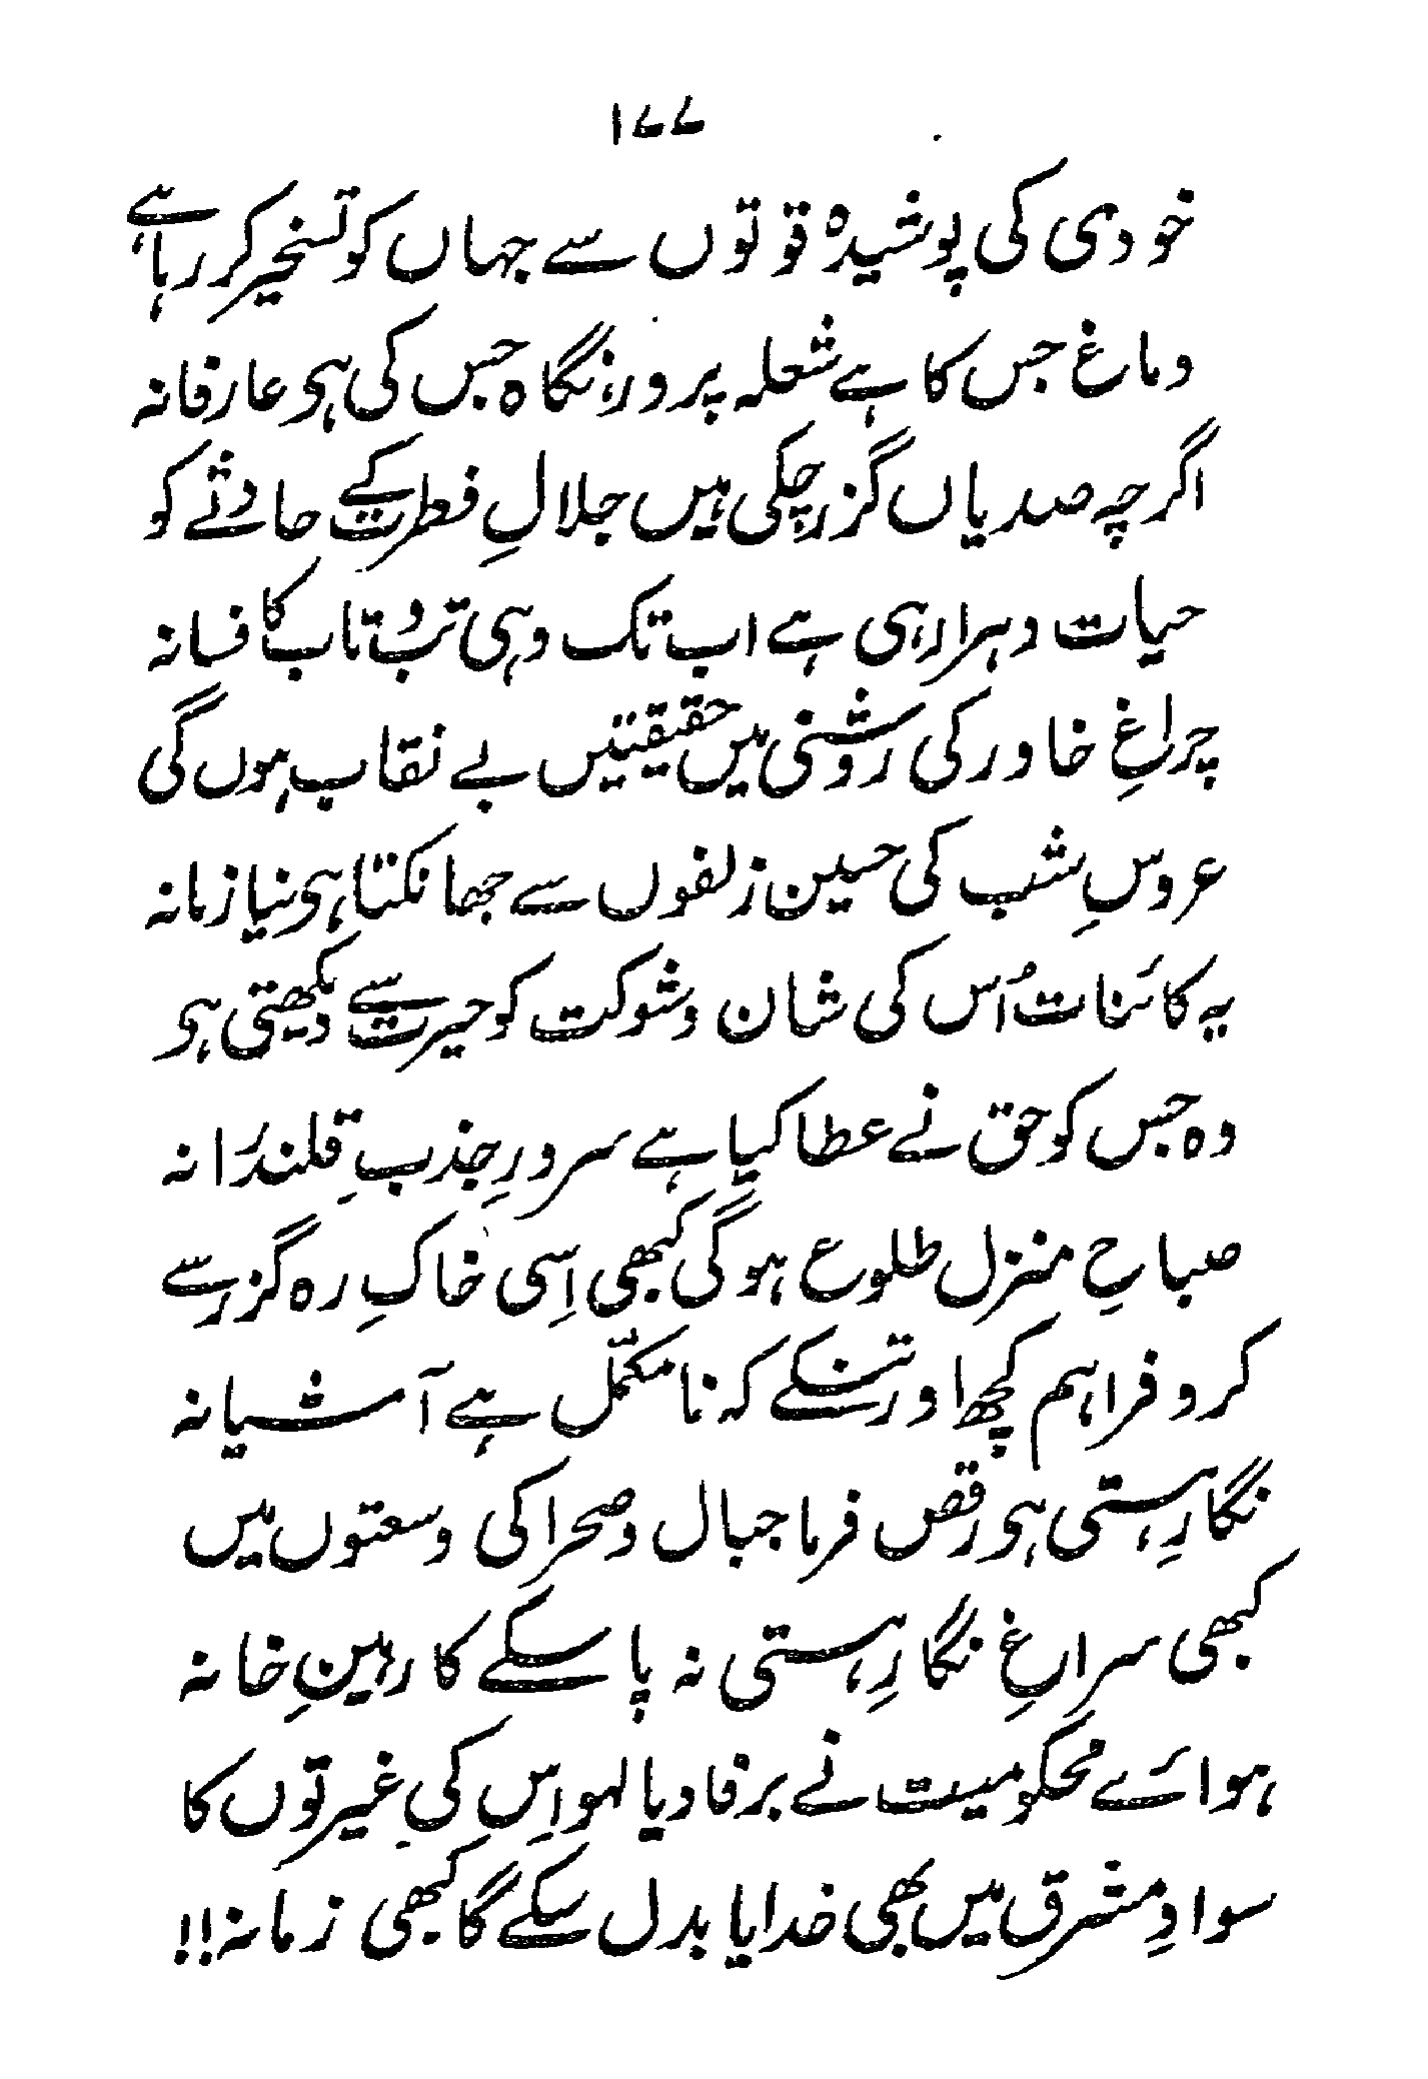 ۱۷۷
خودی کی پوشیدہ قوتوں سے جہاں کو تسخیر کر رہا ہے
دماغ جس کا ہے شعلہ پرور، نگاہ جس کی ہی عارفانہ
اگرچہ صدیاں گزر چکی ہیں جلالِ فطرت کے حادثے کو
حیات دہرا رہی ہے اب تک وہی تب و تاب کا فسانہ
چراغِ خاور کی روشنی میں حقیقتیں بے نقاب ہوں گی
عروسِ شب کی حسین زلفوں سے جھانکتا ہی نیا زمانہ
یہ کائنات اُس کی شان و شوکت کو حیرت سے دیکھتی ہی
وہ جس کو حق نے عطا کیا ہے سرورِ جذبِ قلندرانہ
صباحِ منزل طلوع ہوگی کبھی اِسی خاکِ رہ گزر سے
کرو فراہم کچھ اور تنکے کہ نامکمّل ہے آشیانہ
نگارِ ہستی ہی رقص فرما جبال و صحرا کی وسعتوں میں
کبھی سراغِ نگارِ ہستی نہ پا سکے گا رہینِ خانہ
ہوائے محکومیت نے برفا دیا لہو اِس کی غیرتوں کا
سوادِ مشرق میں بھی خدایا بدل سکے گا کبھی زمانہ!!